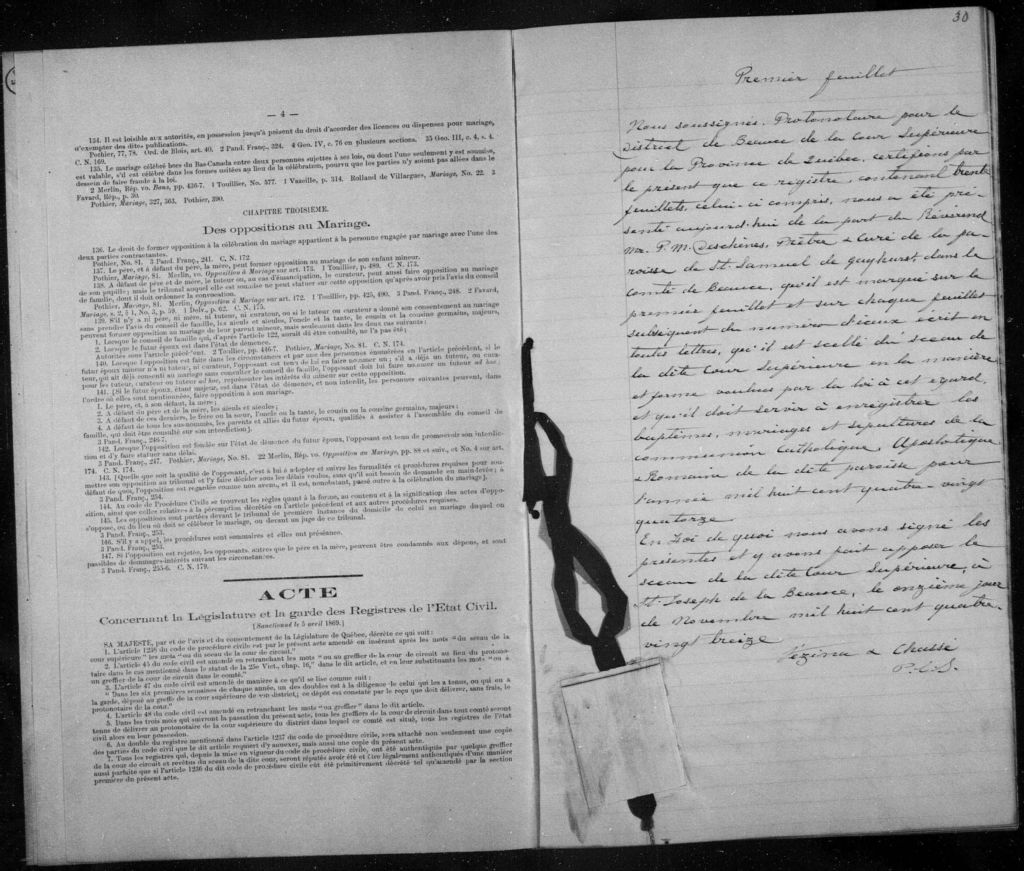 — 4 —
134. Il est loisible aux autorités, en possession jusqu'à présent du droit d'accorder des licences ou dispenses pour mariage,
d'exempter des dites publications.
Pothier, 77, 78. Ord. de Blois, art. 40. 2 Pand. Franç., 324. 4 Geo. IV, c. 76 en plusieurs sections. 35 Geo. III, c. 4, s. 4.
C. N. 169.
135. Le mariage célébré hors du Bas-Canada entre deux personnes sujettes à ses lois, ou dont l'une seulement y est soumise,
est valable, s'il est célébré dans les formes usitées au lieu de la célébration, pourvu que les parties n'y soient pas allées dans le
dessein de faire fraude à la loi.
2 Merlin, Rép. vo. Bans, pp. 436-7. 1 Touillier, No. 577. 1 Vazeille, p. 314. Rolland de Villargues, Mariage, No. 22. 3
Favard, Rép., p. 30.
Pothier, Mariage, 327, 363. Pothier, 390.
CHAPITRE TROISIEME.
Des oppositions au Mariage.
136. Le droit de former opposition à la célébration du mariage appartient à la personne engagée par mariage avec l'une des
deux parties contractantes.
Pothier, No. 81. 3 Pand. Franç., 241. C. N. 172
137. Le père, et à défaut du père, la mère, peut former opposition au mariage de son enfant mineur.
Pothier, Mariage, 81. Merlin, vo. Opposition à Mariage sur art. 173. 1 Touillier, p. 489. C. N. 173.
138. A défaut de père et de mère, le tuteur ou, au cas d'émancipation, le curateur, peut aussi faire opposition au mariage
de son pupille; mais le tribunal auquel elle est soumise ne peut statuer sur cette opposition qu'après avoir pris l'avis du conseil
de famille, dont il doit ordonner la convocation.
Pothier, Mariage, 81. Merlin, Opposition à Mariage sur art. 172. 1 Touillier, pp. 425, 490. 3 Pand. Franç., 248. 2 Favard,
Mariage, s. 2, § 1, No. 5, p. 59. 1 Delv., p. 62. C. N. 175.
139. S'il n'y a ni père, ni mère, ni tuteur, ni curateur, ou si le tuteur ou curateur a donné son consentement au mariage
sans prendre l'avis du conseil de famille, les aïeuls et aïeules, l'oncle et la tante, le cousin et la cousine germains, majeurs,
peuvent former opposition au mariage de leur parent mineur, mais seulement dans les deux cas suivants:
1. Lorsque le conseil de famille qui, d'après l'article 122, aurait dû être consulté, ne l'a pas été;
2. Lorsque le futur époux est dans l'état de démence.
Autorités sous l'article précédent. 2 Touillier, pp. 416-7. Pothier, Mariage, No. 81. C. N. 174.
140. Lorsque l'opposition est faite dans les circonstances et par une des personnes énumérées en l'article précédent, si le
futur époux mineur n'a ni tuteur, ni curateur, l'opposant est tenu de lui en faire nommer un; s'il a déjà un tuteur, ou cura-
teur, qui ait déjà consenti au mariage sans consulter le conseil de famille, l'opposant doit lui faire nommer un tuteur ad hoc,
pour les tuteur, curateur ou tuteur ad hoc, représenter les intérêts du mineur sur cette opposition.
141. [Si le futur époux, étant majeur, est dans l'état de démence, et non interdit, les personnes suivantes peuvent, dans
l'ordre où elles sont mentionnées, faire opposition à son mariage.
1. Le père, et, à son défaut, la mère;
2. A défaut du père et de la mère, les aïeuls et aïeules;
3. A défaut de ces derniers, le frère ou la sœur, l'oncle ou la tante, le cousin ou la cousine germains, majeurs;
4. A défaut de tous les sus-nommés, les parents et alliés du futur époux, qualifiés à assister à l'assemblée du conseil de
famille, qui doit être consulté sur son interdiction].
3 Pand. Franç., 246-7.
142. Lorsque l'opposition est fondée sur l'état de démence du futur époux, l'opposant est tenu de promouvoir son interdic-
tion et d'y faire statuer sans délai.
3 Pand. Franç., 247. Pothier, Mariage, No. 81. 22 Merlin, Rép. vo. Opposition au Mariage, pp. 88 et suiv., et No. 4 sur art.
174. C. N. 174.
143. [Quelle que soit la qualité de l'opposant, c'est à lui à adopter et suivre les formalités et procédures requises pour sou-
mettre son opposition au tribunal et l'y faire décider sous les délais voulus, sans qu'il soit besoin de demande en main-levée; à
défaut de quoi, l'opposition est regardée comme non avenue, et il est, nonobstant, passé outre à la célébration du mariage].
3 Pand. Franç., 254.
144. Au code de Procédure Civile se trouvent les règles quant à la forme, au contenu et à la signification des actes d'oppo-
sition, ainsi que celles relatives à la péremption décrétée en l'article précédent et aux autres procédures requises.
145. Les oppositions sont portées devant le tribunal de première instance du domicile de celui au mariage duquel on
s'oppose, ou du lieu où doit se célébrer le mariage, ou devant un juge de ce tribunal.
3 Pand. Franç., 253.
146. S'il y a appel, les procédures sont sommaires et elles ont préséance.
3 Pand. Franç., 253.
147. Si l'opposition est rejetée, les opposants, autres que le père et la mère, peuvent être condamnés aux dépens, et sont
passibles de dommages-intérêts suivant les circonstances.
3 Pand. Franç., 255-6. C. N. 179.
ACTE
Concernant la Législature et la garde des Registres de l'Etat Civil.
[Sanctionné le 5 avril 1869.]
SA MAJESTÉ, par et de l'avis et du consentement de la Législature de Québec, décrète ce qui suit:
1. L'article 1236 du code de procédure civile est par le présent acte amendé en insérant après les mots "du sceau de la
cour supérieure," les mots "ou du sceau de la cour de circuit."
2. L'article 45 du code civil est amendé en retranchant les mots "ou au greffier de la cour de circuit au lieu du protono-
taire dans le cas mentionné dans le statut de la 25e Vict., chap. 16," dans le dit article, et en leur substituants les mots "ou à
un greffier de la cour de circuit dans le comté."
3. L'article 47 du code civil est amendé de manière à ce qu'il se lise comme suit:
"Dans les six premières semaines de chaque année, un des doubles est à la diligence de celui qui les a tenus, ou qui en a
la garde, déposé au greffe de la cour supérieure de son district; ce dépôt est constaté par le reçu que doit délivrer, sans frais, le
protonotaire de la cour."
4. L'article 48 du code civil est amendé en retranchant les mots "ou greffier" dans le dit article.
5. Dans les trois mois qui suivront la passation du présent acte, tous les greffiers de la cour de circuit dans tout comté seront
tenus de délivrer au protonotaire de la cour supérieure du district dans lequel ce comté est situé, tous les registres de l'état
civil alors en leur possession.
6. Au double du registre mentionné dans l'article 1237 du code de procédure civile, sera attaché non seulement une copie
des parties du code civil que le dit article requiert d'y annexer, mais aussi une copie du présent acte.
7. Tous les registres qui, depuis la mise en vigueur du code de procédure civile, ont été authentiqués par quelque greffier
de la cour de circuit et revêtus du sceau de la dite cour, seront réputés avoir été et être légalement authentiqués d'une manière
aussi parfaite que si l'article 1236 du dit code de procédure civile eût été primitivement décrété tel qu'amendé par la section
première du présent acte.
30
Premier feuillet
Nous soussignés, Protonotaire pour le
District de Beauce de la Cour Supérieure
pour la Province de Québec, certifions par
le présent que ce registre, contenant trente
feuillets, celui-ci compris, nous a été pré-
senté aujourd'hui de la part du Révérend
Mr. P. M. Deschènes, Prêtre & Curé de la pa-
roisse de St. Samuel de Gayhurst dans le
comté de Beauce, qu'il est marqué sur le
premier feuillet et sur chaque feuillet
subséquent du numéro d'iceux écrit en
toutes lettres, qu'il est scellé du sceau de
la dite Cour Supérieure en la manière
et forme voulues par la loi à cet égard,
et qu'il doit servir à enregistrer les
baptêmes, mariages et sépultures de la
communion Catholique, Apostolique
& Romaine de la dite paroisse pour
l'année mil huit cent quatre-vingt
quatorze
En Foi de quoi nous avons signé les
présentes et y avons fait apposer le
sceau de la dite Cour Supérieure, à
St. Joseph de la Beauce, le onzième jour
de Novembre mil huit cent quatre-
vingt treize
Vézina & Chassé
P.C.S.